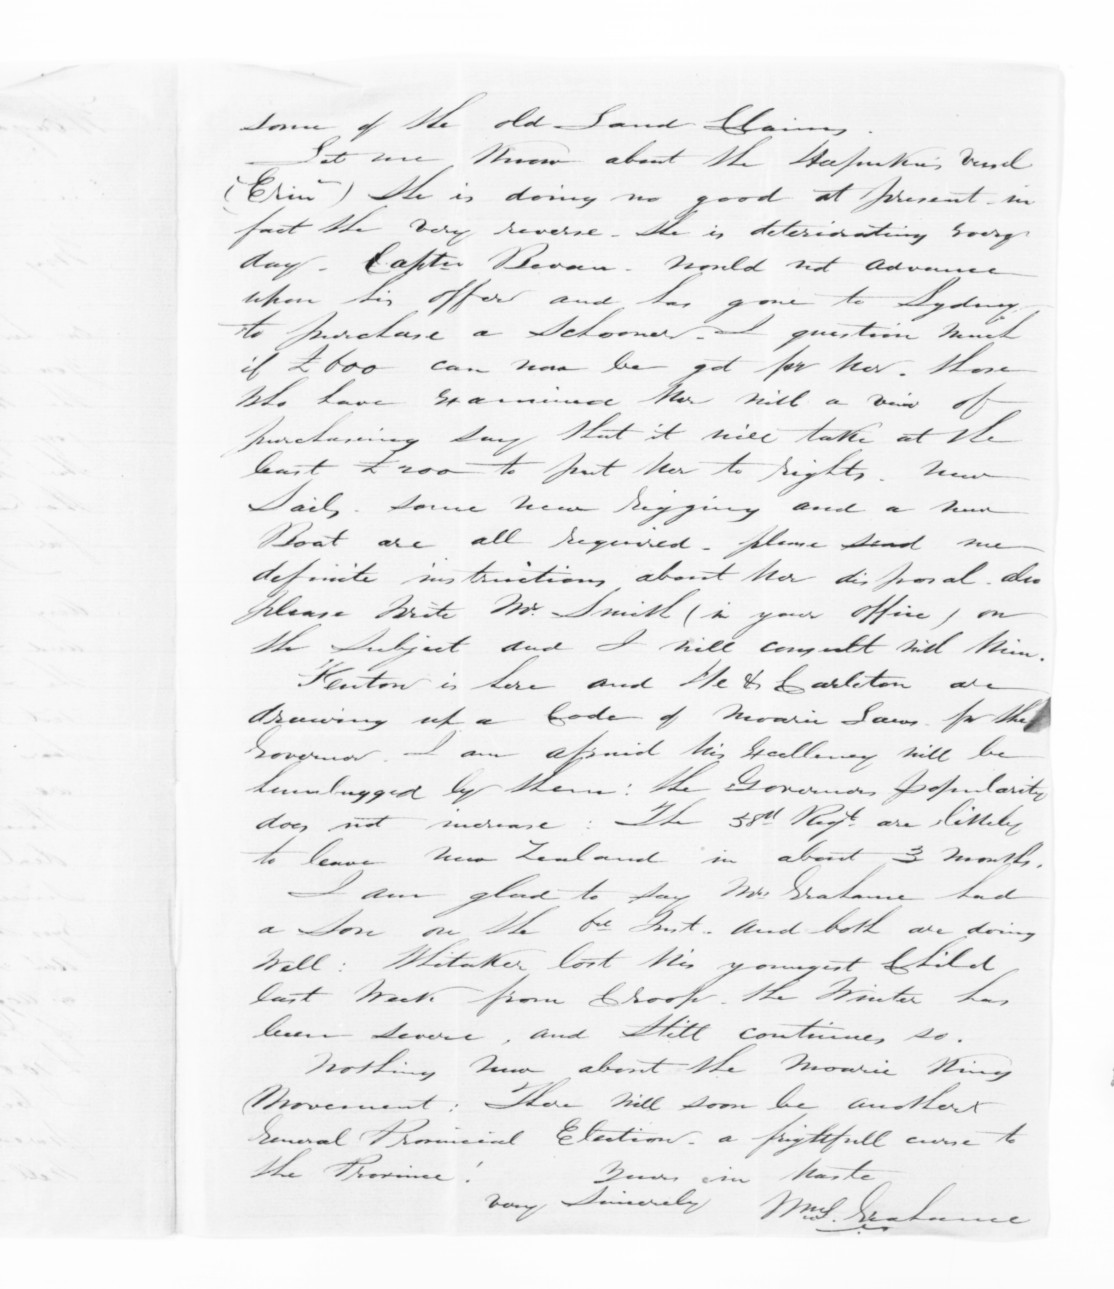 some of the old Land Claims.
Let me know about the Hapuku's Vessel
("Erin") She is doing no good at present - in
fact the very reverse - She is deteriorating every
day. Captn Bevan - would not advance
upon his offer and has gone to Sydney
to purchase a Schooner - I question much
if £600 can now be got for her. those
who have examined her with a view of
purchasing say that it will take at the
least £200 to put her to rights. New
Sails. some new rigging and a new
Boat are all required - please send me
definite instructions about her disposal. also
please write Mr. Smith (in your office) on
the Subject and I will consult with him.
Fenton is here and He & Carleton are
drawing up a Code of Maorie Laws for the
Governor. I am afraid his Excellency will be
humbugged by them: the Governors popularity
does not increase: The 58th Regt. are likely
to leave New Zealand in about 3 months.
I am glad to say Mrs Grahame had
a Son on the Inst. and both are doing
well: Whitaker lost his youngest Child
last week from Croop. the Winter has
been severe, and still continues so.
Nothing new about the Maorie King
Movement: There will soon be another
General Provincial Election - a frightfull curse to
the Province! Yours in haste
very Sincerely Wm S. Grahame